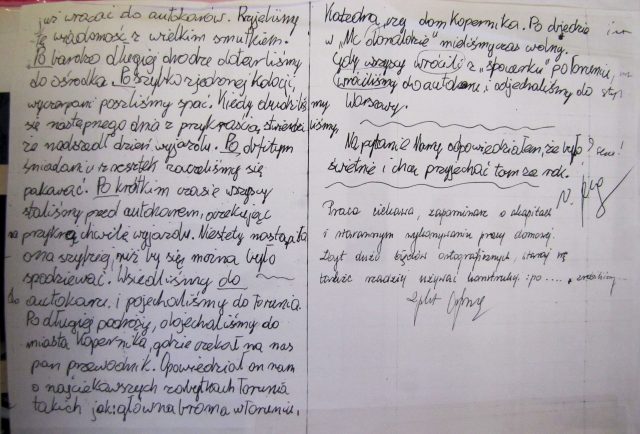 już wracać do autokarów. Przyjeliśmy
tę wiadomość z wielkim smutkiem.
Po bardzo długiej drodze dotarliśmy
do ośrodka. Po szybko zjedzonej kolacji,
wyczerpani poszliśmy spać. Kiedy obudziliśmy
się następnego dnia z przykrością, stwierdziliśmy,
że nadszedł dzień wyjazdu. Po obfitym
śniadaniu z resztek zaczeliśmy się
pakować. Po krótkim czasie wszyscy
staliśmy przed autokarem, czekając
na przykrą chwilę wyjazdu. Niestety nastąpiła
ona szybciej, niż by się można było
spodziewać. Wsiedliśmy do
do autokaru i pojechaliśmy do Torunia.
Po długiej podróży, dojechaliśmy do
miasta Kopernika, gdzie czekał na nas
pan przewodnik. Opowiedział on nam
o najciekawszych zabytkach Torunia
takich jak: główna brama w Toruniu,
Katedra, czy dom Kopernika. Po obiedzie
w „Mc Donaldzie" mieliśmy czas wolny.
Gdy wszyscy wrócili z „spaceru" po Toruniu,
wróciliśmy do autokaru i odjechaliśmy do
Warszawy.
Na pytanie Mamy odpowiedziałam, że było
świetnie i chcę przyjechać tam za rok.
Praca ciekawa, zapominasz o akapitach
i starannym wykonywaniu pracy domowej.
Zbyt dużo błędów ortograficznych, staraj się
też rzadziej używać konstrukcji: po.....,